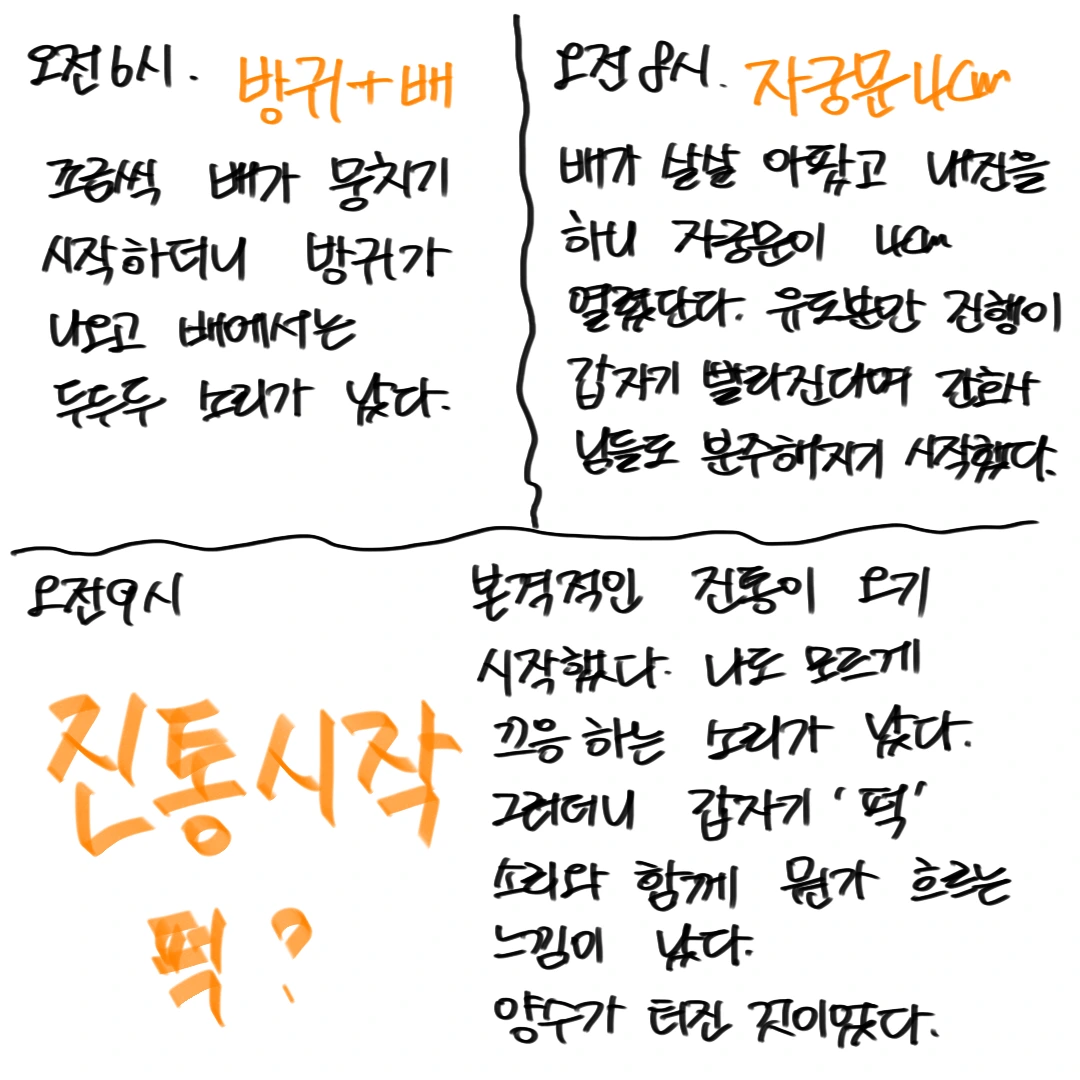 오전6시. 방귀+배
조금씩 배가 뭉치기
시작하더니 방귀가
나오고 배에서는
두두두 소리가 났다.
오전 8시. 자궁문4cm
배가 살살 아팠고 내진을
하니 자궁문이 4cm
열렸단다. 유도분만 진행이
갑자기 빨라진다며 간호사
님들도 분주해지기 시작했다.
오전9시
진통시작
퍽?
본격적인 진통이 오기
시작했다. 나도 모르게
끄응 하는 소리가 났다.
그러더니 갑자기 '퍽'
소리와 함께 뭔가 흐르는
느낌이 났다.
양수가 터진 것이였다.